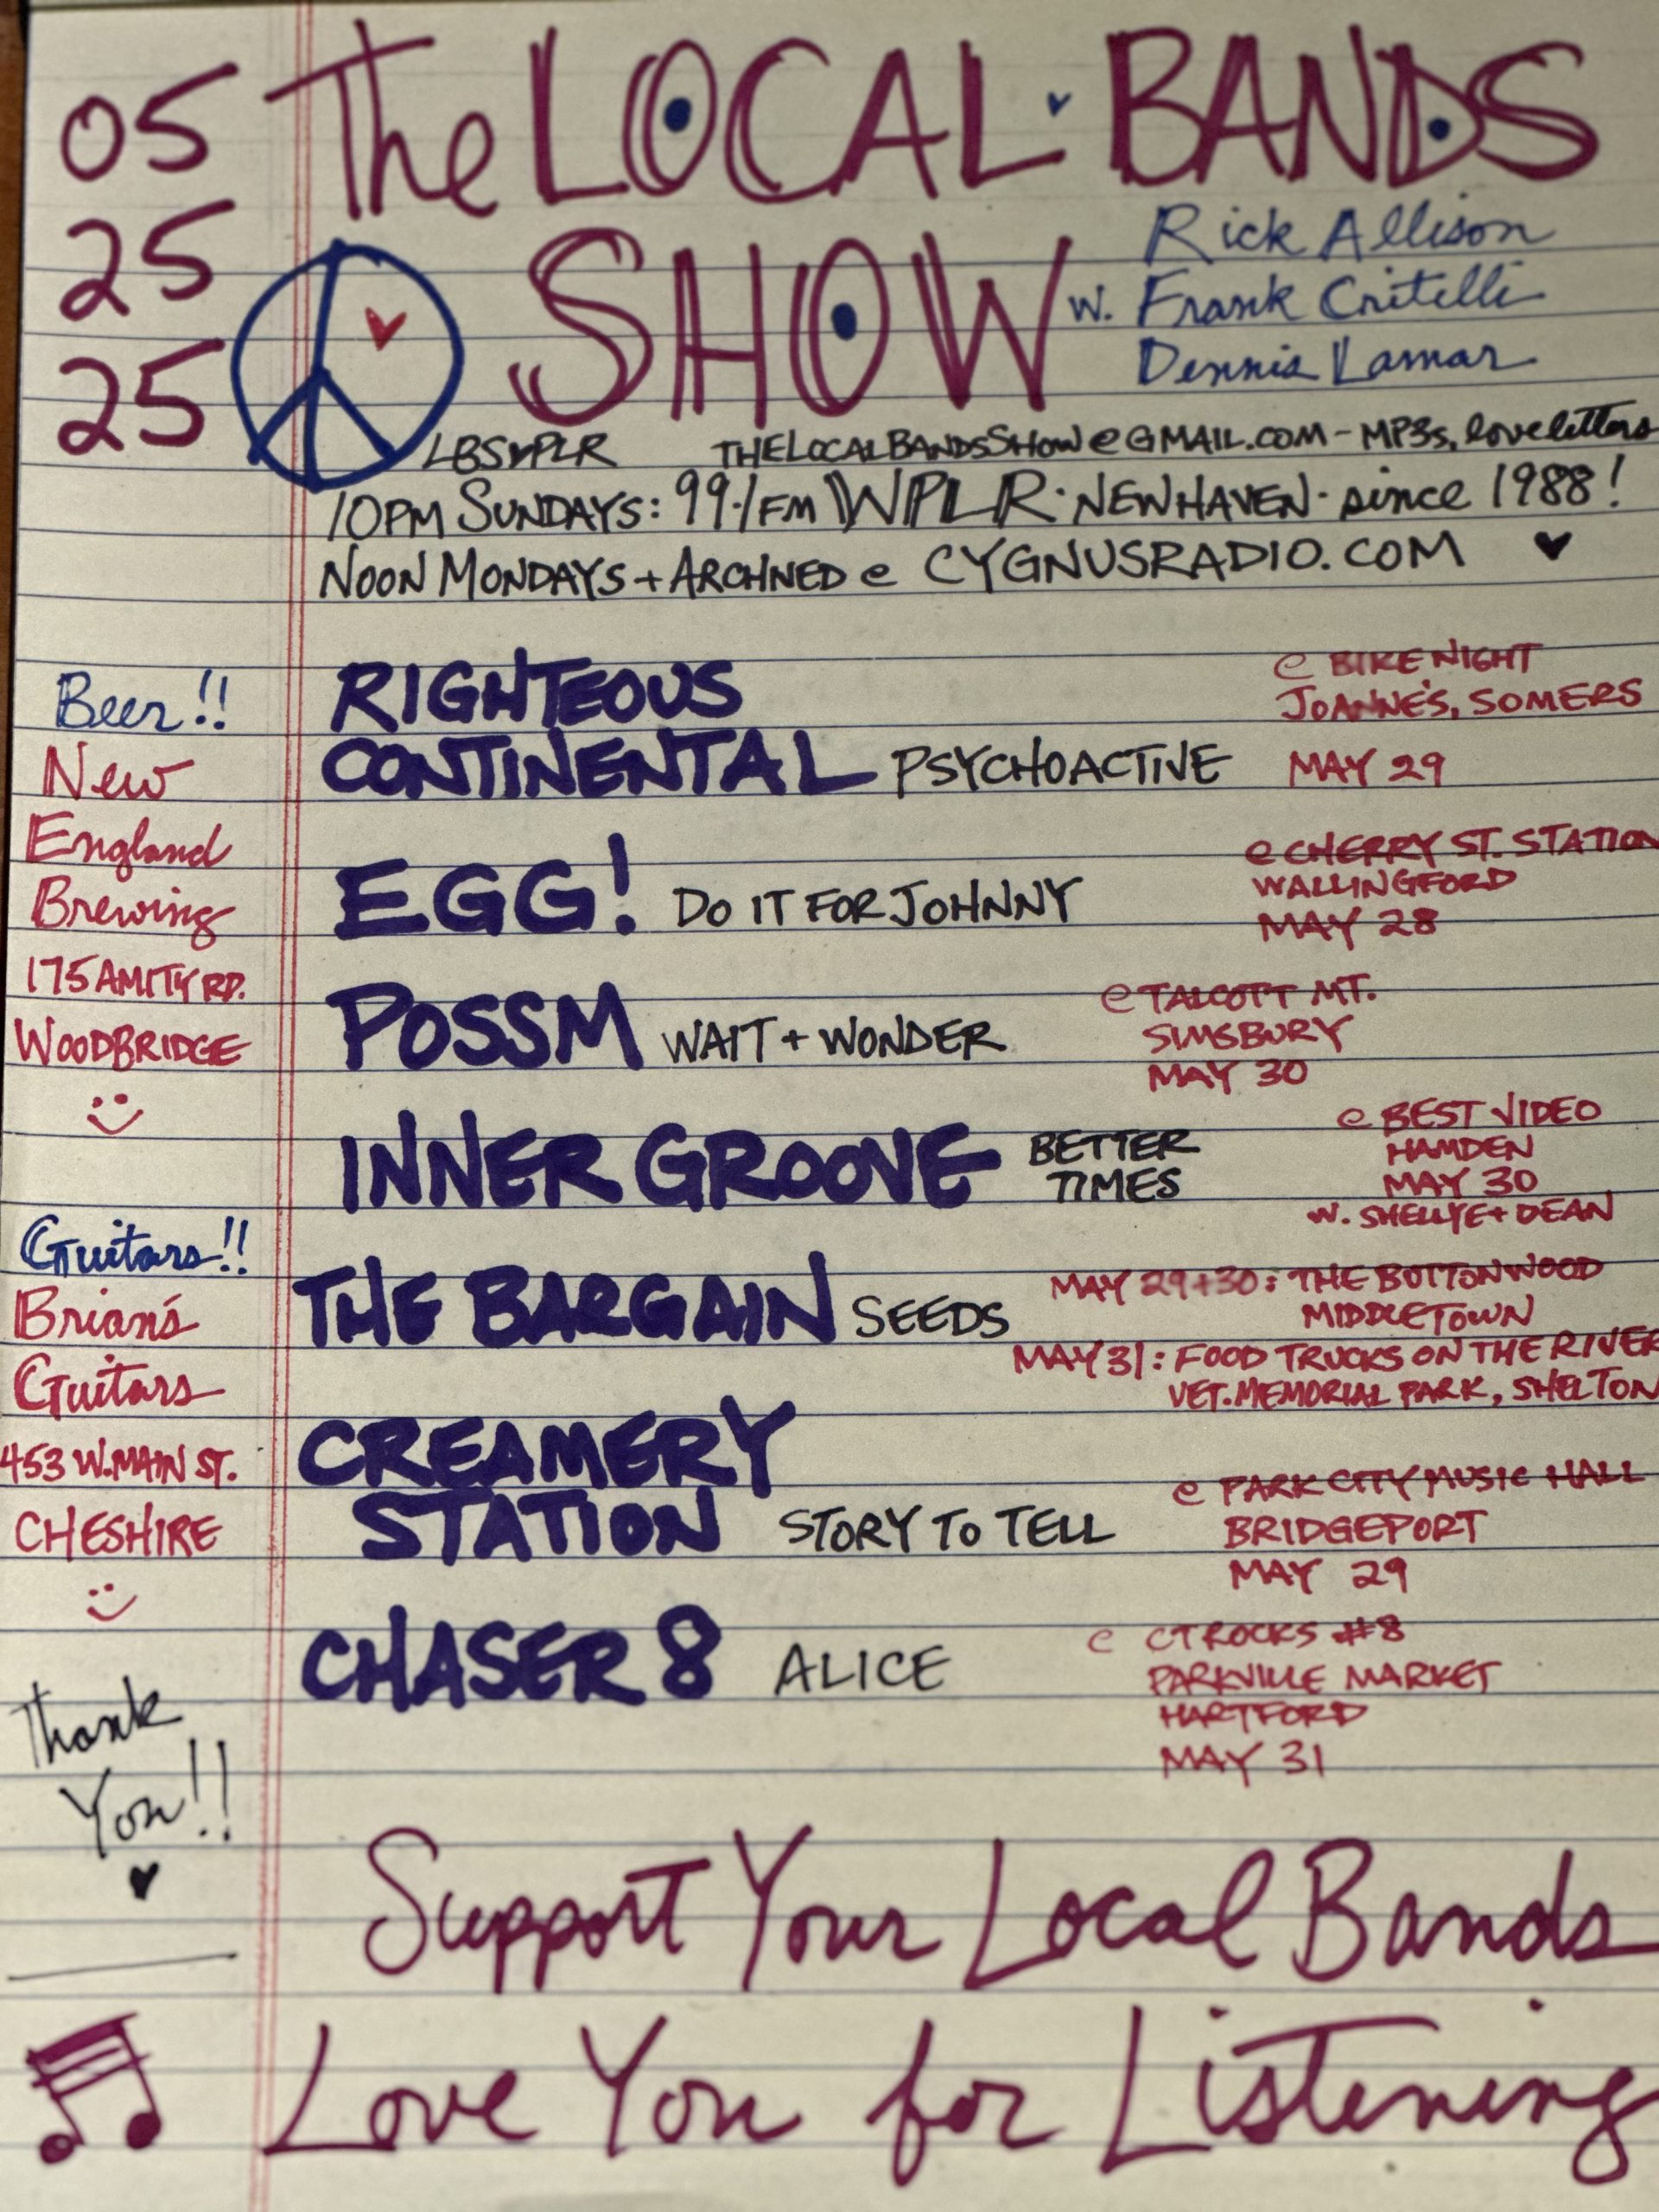 05
25
25
The LOCAL BANDS
SHOW
Rick Allison
w. Frank Critelli
Dennis Lamar
LBSWPLR THELOCALBANDSSHOW@GMAIL.COM - MP3s, love letters
10PM SUNDAYS: 99.1FM WPLR · NEW HAVEN · since 1988!
NOON MONDAYS + ARCHIVED @ CYGNUSRADIO.COM
Beer!!
New
England
Brewing
175 AMITY RD.
WOODBRIDGE
Guitars!!
Brian's
Guitars
453 W. MAIN ST.
CHESHIRE
Thank
You!!
RIGHTEOUS
CONTINENTAL PSYCHOACTIVE
@ BIKE NIGHT
JOANNE'S, SOMERS
MAY 29
EGG! DO IT FOR JOHNNY
@ CHERRY ST. STATION
WALLINGFORD
MAY 28
POSSM WAIT + WONDER
@ TALCOTT MT.
SIMSBURY
MAY 30
INNER GROOVE BETTER
TIMES
@ BEST VIDEO
HAMDEN
MAY 30
W. SHELLYE + DEAN
THE BARGAIN SEEDS
MAY 29+30: THE BUTTONWOOD
MIDDLETOWN
MAY 31: FOOD TRUCKS ON THE RIVER
VET. MEMORIAL PARK, SHELTON
CREAMERY
STATION STORY TO TELL
@ PARK CITY MUSIC HALL
BRIDGEPORT
MAY 29
CHASER 8 ALICE
@ CT ROCKS #8
PARKVILLE MARKET
HARTFORD
MAY 31
Support Your Local Bands
Love You for Listening